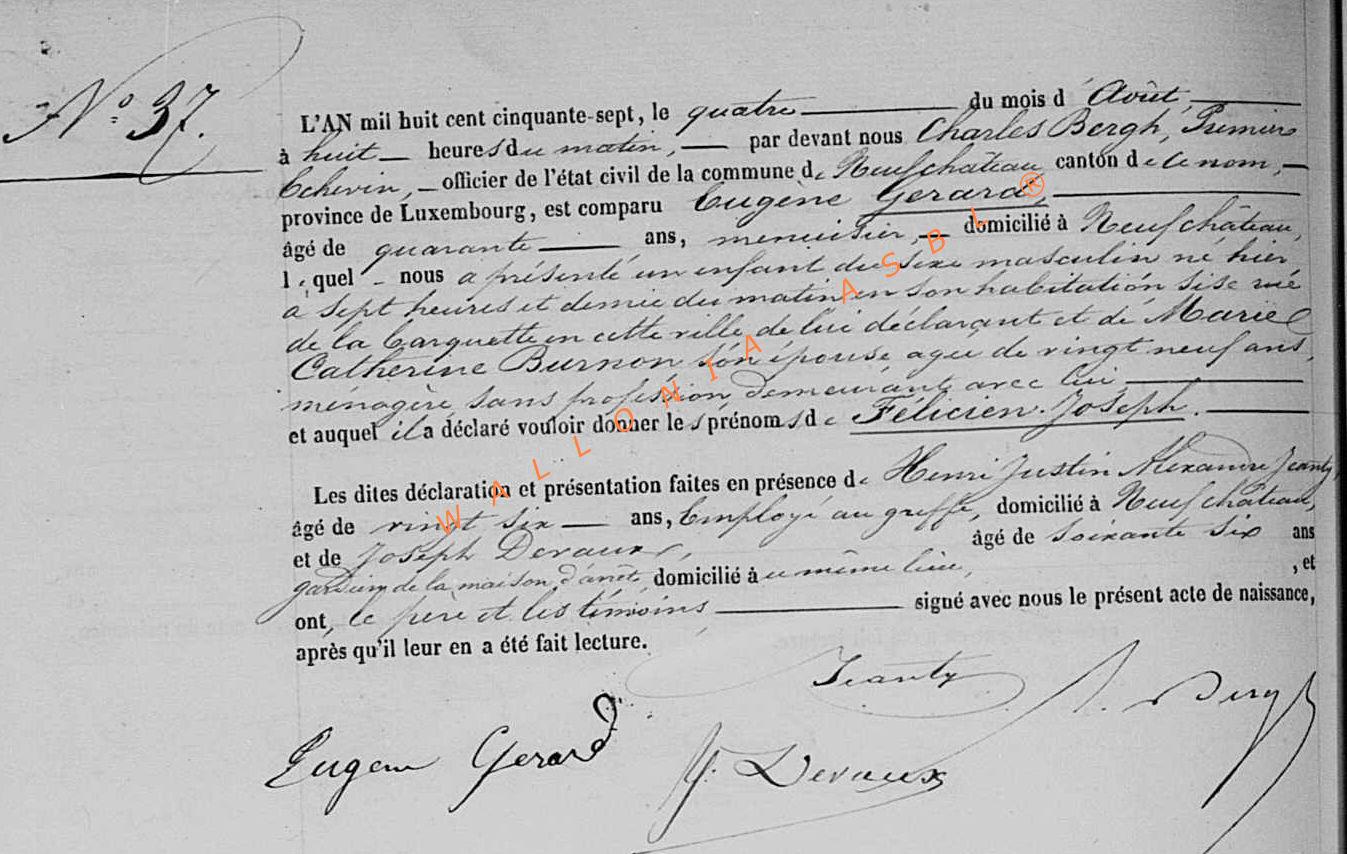 N° 37.
L'AN mil huit cent cinquante-sept, le quatre du mois d'Août,
à huit heures du matin, par devant nous Charles Bergh, Premier
Echevin, officier de l'état civil de la commune de Neufchâteau canton de ce nom,
province de Luxembourg, est comparu Eugène Gerard,
âgé de quarante ans, menuisier, domicilié à Neufchâteau,
lequel nous a présenté un enfant du sexe masculin né hier
a sept heures et demie du matin en son habitation sise rue
de la Carquette en cette ville de lui déclarant et de Marie
Catherine Burnon son épouse agée de vingt neuf ans,
ménagère, sans profession, demeurant avec lui
et auquel il a déclaré vouloir donner les prénoms de Félicien Joseph.
Les dites déclaration et présentation faites en présence de Henri Justin Alexandre Jeanty,
âgé de vingt six ans, Employé au greffe, domicilié à Neufchâteau,
et de Joseph Devaux, âgé de soixante six ans
gardien de la maison d'arrêt, domicilié au même lieu, , et
ont, le père et les témoins, signé avec nous le présent acte de naissance,
après qu'il leur en a été fait lecture.
Jeanty
Bergh
Eugene Gerard
J. Devaux
WALLONIA ASBL ®